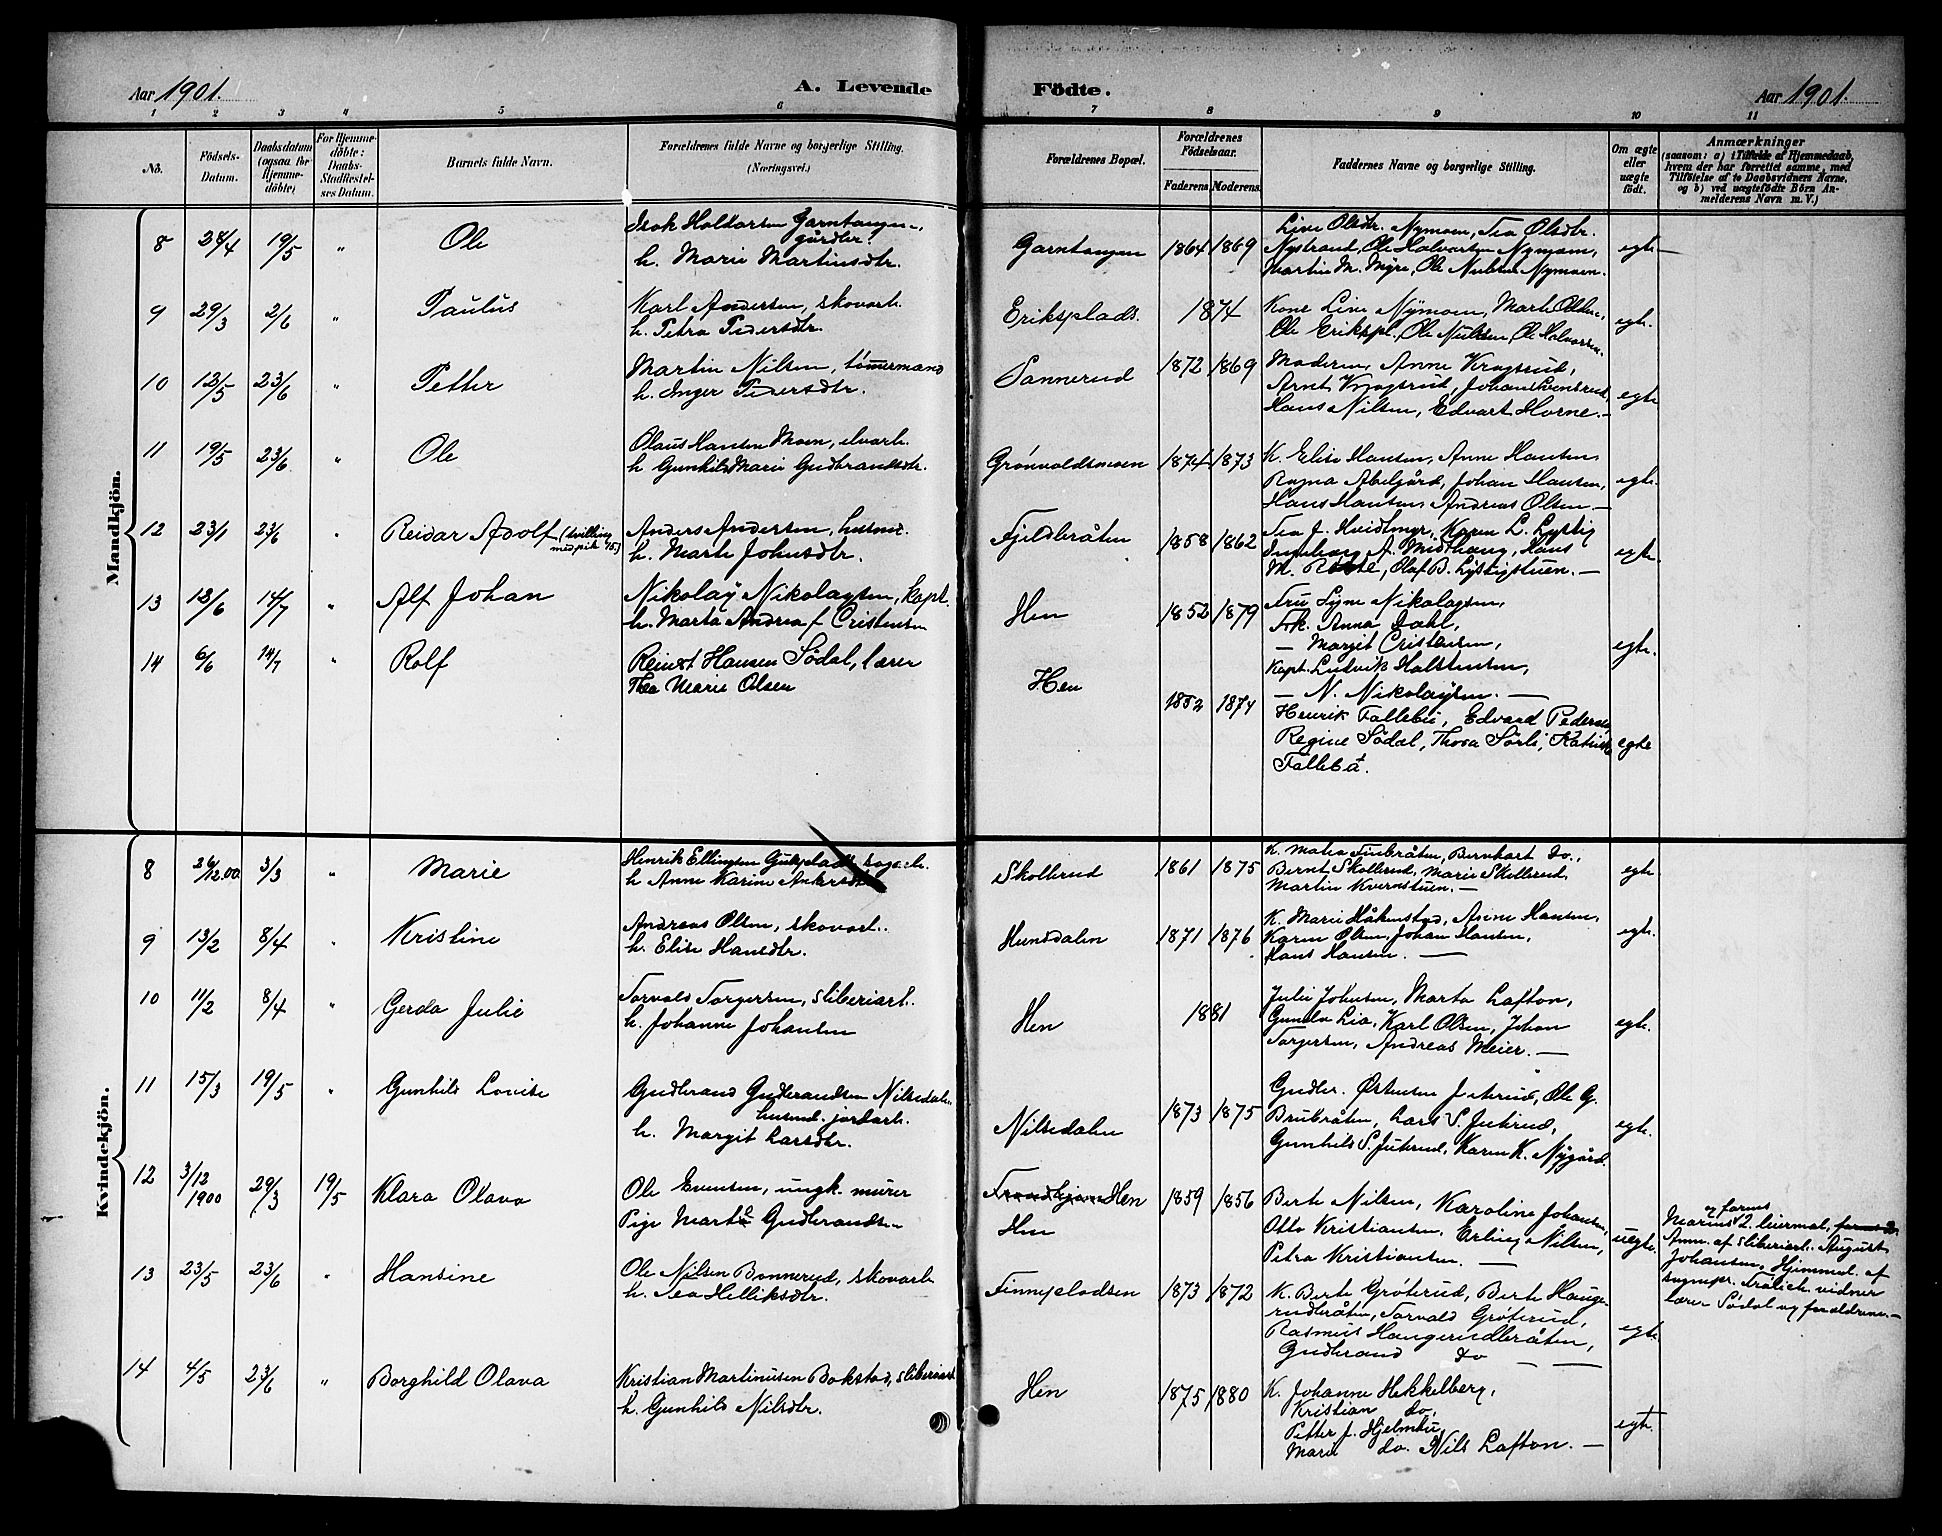 Aar 1901. A. Levende
Födte. Aar 1901.
1 2 3 4 5 6 7 8 9 10 11
No. Födsels-Datum. Daabsdatum (ogsaa for Hjemme-döbte) For Hjemme-döbte: Daabs-Stadfæstel-ses Datum. Barnets fulde Navn. Forældrenes fulde Navne og borgerlige Stilling. (Næringsvei.) Forældrenes Bopæl. Forældrenes Födselsaar. Faderens Moderens. Faddernes Navne og borgerlige Stilling. Om ægte eller uægte födt. Anmærkninger
(saasom: a) i Tilfælde af Hjemmedaab,
hvem der har forrettet samme, med
Tilföielse af to Daabsvidners Navne,
og b) ved uægtefödte Börn An-
melderens Navn m. V.)
Mandkjön.
8 24/4 19/5 " Ole
Garntangen,
gårdbr.
h. Marie Martinsdtr.
Garntangen 1864 1869
Line Olsdtr. Nymoen, Tea Olsdtr.
Nystrand, Ole Halvorsen Nymoen,
Martin M. Myre, Ole Nielsen Nymoen.
egte
9 29/3 2/6 " Paulus
Karl Andersen, skovarb.
h. Petra Pedersdtr.
Eriksplads. 1874
Kone Line Nymoen, Marte Olsen,
Ole Erikspl., Ole Nielsen, Ole Halvorsen.
egte.
10 12/5 23/6 " Petter
Martin Nilsen, tømmermand
h. Inger Pedersdtr.
Sannerud 1872 1869
Moderen, Anne Kragsrud,
Arnt Kragsrud, Johan
Hans Nilsen, Edvart Horne.
egte.
11 19/5 23/6 " Ole
Olaus Hansen Moen, elvarb.
h. Gunhild Marie Gudbrandsdtr.
Grønvoldsmoen 1874 1873
K. Elise Hansen, Anne Hansen
Ragna Abelgård, Johan Hansen,
Hans Hansen, Andreas Olsen.
egte.
12 23/1 23/6 " Reidar Adolf (tvilling
med pik
Anders Andersen, husmd.
h. Marte Johnsdtr.
Fjeldbråten 1858 1862
Tea J. Hvidtmyr, Karen L. Lystig
Ingeborg A. Midthaug, Hans
M. Olaf B. Lystigstuen.
egte.
13 13/6 14/7 " Alf Johan
Nikolay Nikolaysen, kapt.
h. Marta Andrea f. Cristensen
Hen 1852 1879
Fru Lyne Nikolaysen,
Frk. Anna Dahl,
— Margit Cristensen,
Kapt. Ludvik Halstensen,
— N. Nikolaysen. —
egte.
14 6/6 14/7 " Rolf
Reinert Hansen Södal, lærer
Thea Marie Olsen
Hen 1874
Henrik Fallebu, Edvard Pedersen
Regine Södal, Thora Sörli,
egte
Kvindekjön.
8 26/12.00 3/3 " Marie
Henrik Ellingsen
h. Anne Karine
Skollerud 1861 1875
K. Mathea Finbråten, Bernhart do.,
Bernt Skollerud, Marie Skollerud,
Martin Kvernstuen.
egte.
9 13/2 8/4 " Kristine
Andreas Olsen, skovarb.
h. Elise Hansdtr.
Hunsdalen 1871 1876
K. Marie Håkenstad, Anne Hansen,
Karen Olsen, Johan Hansen,
Hans Hansen.
egte.
10 11/2 8/4 " Gerda Julie
Torvald Torgersen, sliberiarb.
h. Johanne Johansen
Hen 1881
Julie Johnsen, Marta Lafton,
Gunda Lia, Karl Olsen, Johan
Torgersen, Andreas Meier. —
egte.
11 15/3 19/5 " Gunhild Lovise
Gudbrand Gudbrandsen Nilsedalen
husmd. jordarb.
h. Margit Larsdtr.
Nilsedalen 1873 1875
Gudbr. Østensen Juterud, Ole G.
Brubråten, Lars S. Juterud,
Gunhild S. Juterud, Karen K. Nygård.
egte.
12 3/12 1900 29/3 19/5 Klara Olava
Ole Evensen, ungk. murer
Pige Marte Gudbrandsen
Hen
Hen
1859 1856
Berte Nilsen, Karoline Johansen,
Otto Kristiansen, Erling Nilsen,
Petra Kristiansen. —
uegte.
og farens
Marins 2. leiermal,
Anm. af sliberiarb. August
Johansen, Hjemmed. af
sognepr. Frølich, vidner
lærer Södal og forældrene.
13 23/5 23/6 " Hansine
Ole Nilsen Bonnerud, skovarb
h. Tea Helliksdtr.
Finnpladsen 1873 1872
K. Berte Grøterud, Berte Hauge-
rudbråten, Torvald Grøterud,
Rasmus Haugerudbråten,
Gudbrand do — —
egte
14 4/5 23/6 " Borghild Olava
Kristian Martinusen Bakstad, sliberiarb
h. Gunhild Nilsdtr.
Hen 1875 1880
K. Johanne Hekkelberg,
Kristian do,
Petter J. Hjelmbu
Marie do. Nils Lafton. —
egte.